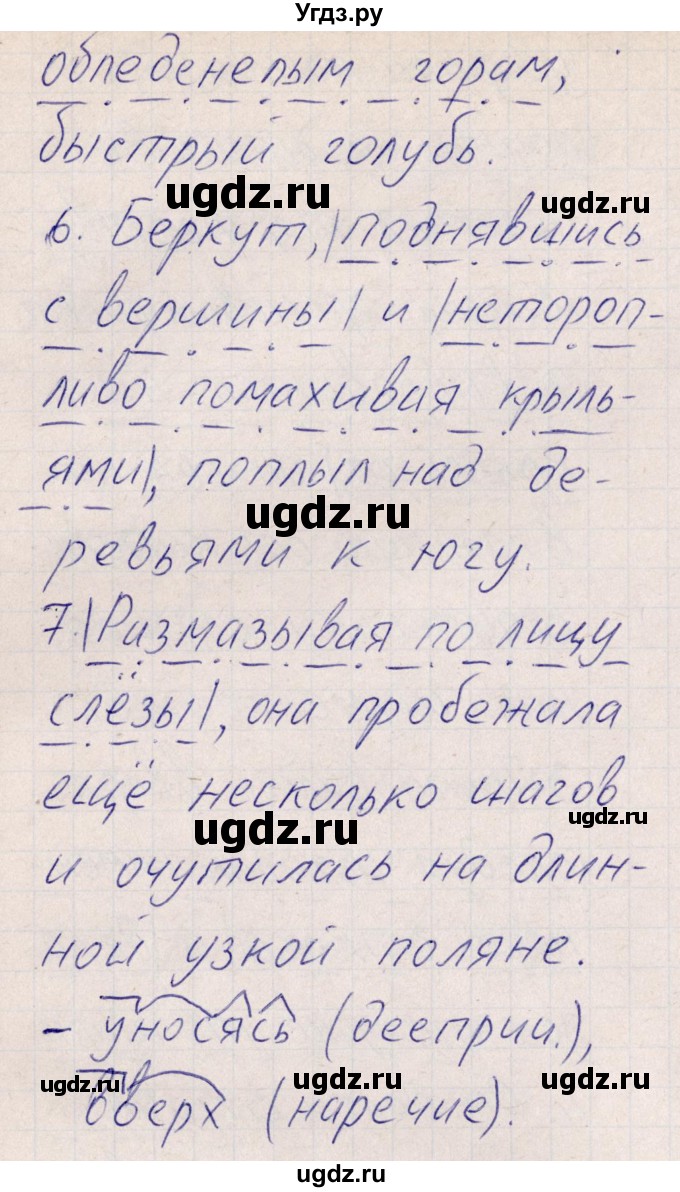 Угдз.ру
обледенелым горам,
быстрый голубь.
ugdz.ru ugdz.ru
6. Беркут, |поднявшись
с вершины| и |нетороп-
ливо помахивая крыль-
ями|, поплыл над де-
ugdz.ru ugdz.ru
ревьями к югу.
7. |Размазывая по лицу
слёзы|, она пробежала
ещё несколько шагов
ugdz.ru ugdz.ru
и очутилась на длин-
ной узкой поляне.
- уносясь (дееприч.),
ugdz.ru ugdz.ru ugdz.ru
вверх (наречие).
ugdz.ru